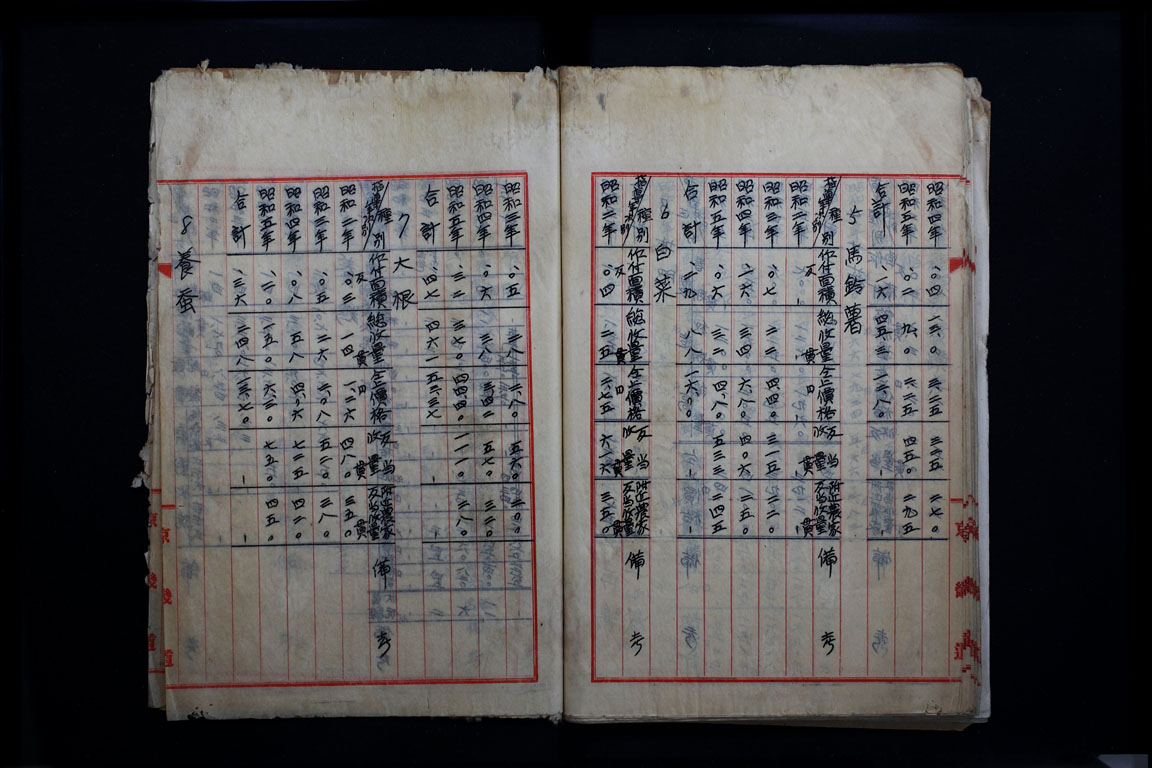 昭和四年 、〇四 一三、〇 三、二五 三二五 二七〇
昭和五年 、〇二 九、〇 二、二五 四五〇 二九五
合計 、〇六 四五、三 一二、八〇
5 馬鈴薯
種別 作付面積 總收量 仝上價格 反当收量 附近農家反当收量 備考
昭和二年
昭和三年 、〇七 二二 四、四〇 三一五 三二〇
昭和四年 、一六 三四 六、八〇 四〇六 三五〇
昭和五年 、〇六 三二 四、八〇 五三三 二四五
合計 、二九 八八 一六、〇〇
6 白菜
種別 作付面積 總收量 仝上價格 反当收量 附近農家反当收量 備考
昭和二年 、〇四 二五 二、七五 六一六 三五〇
昭和三年 、〇五 二八 二、八〇 五六〇 三〇〇
昭和四年 、〇六 三八 三、四二 五七〇 三二〇
昭和五年 、三二 三七〇 四四、四〇 一一一〇 三八〇
合計 、四七 四六一 五三、三七
7 大根
種別 作付面積 總收量 仝上價格 反当收量 附近農家反当收量 備考
昭和二年 、〇三 一四 一、二六 四八〇 三五〇
昭和三年 、〇五 二六 二、〇八 五二〇 三八〇
昭和四年 、〇八 五八 四、〇六 七二五 四二〇
昭和五年 、二〇 一五〇 六、三〇 七五〇 四五〇
合計 、三六 二四八 一三、七〇
8 養蚕